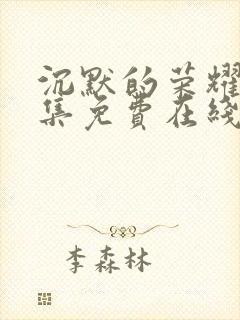 沉默的荣耀
集免费在线
李森林